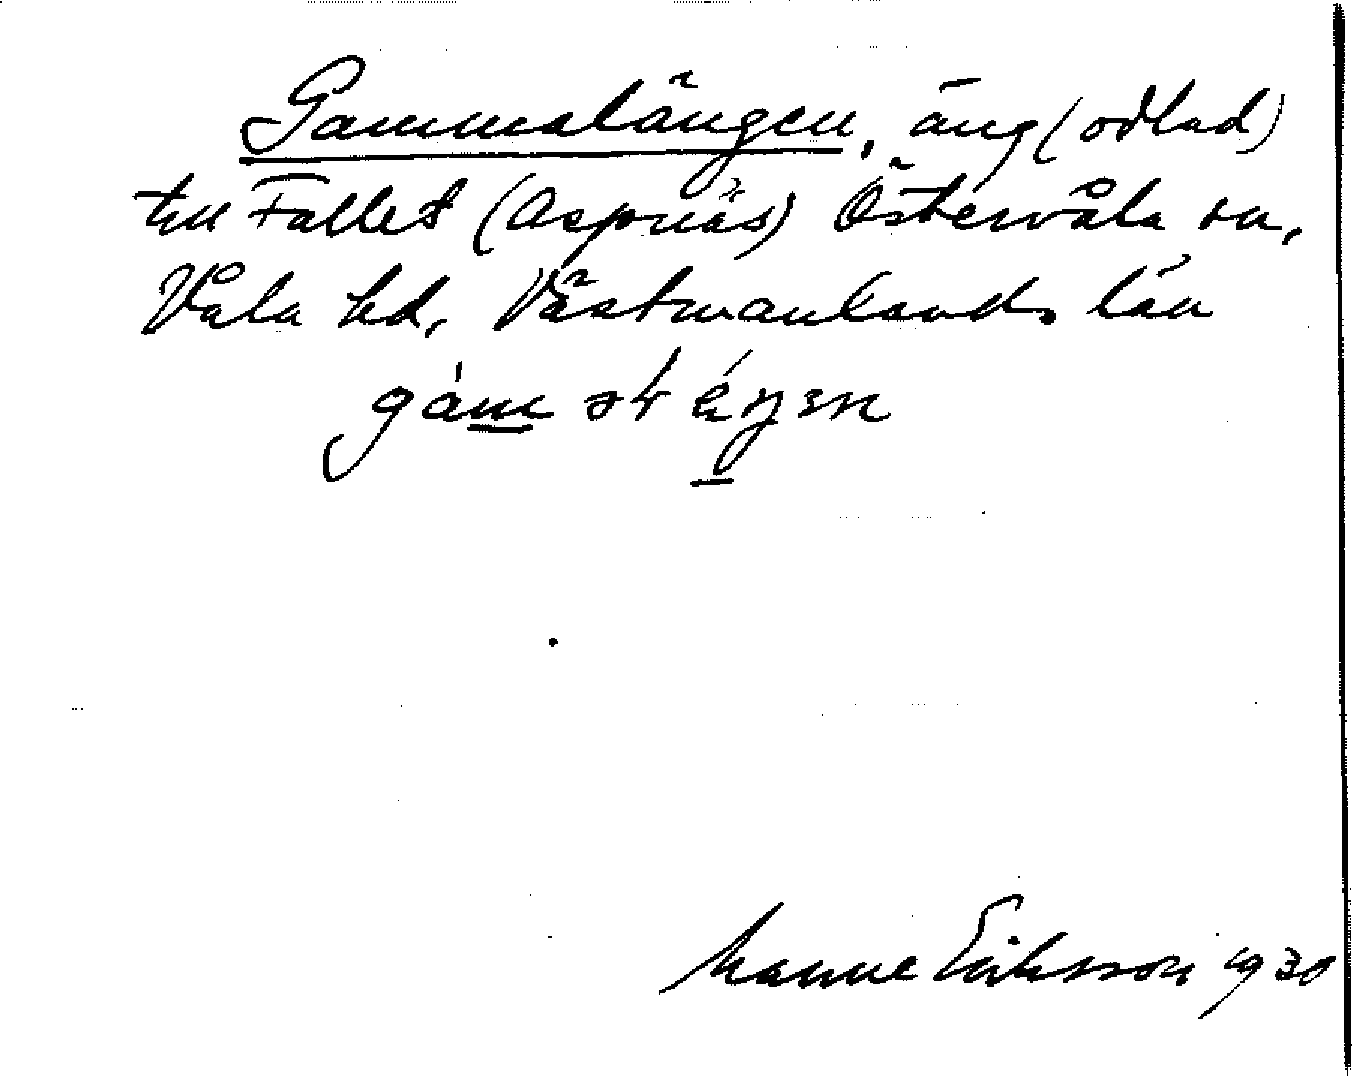 Gammalängen, äng (odlad)
till Fallet (Aspnäs) Östervåla sn,
Våla hd, Västmanlands län
Manne Eriksson 1930